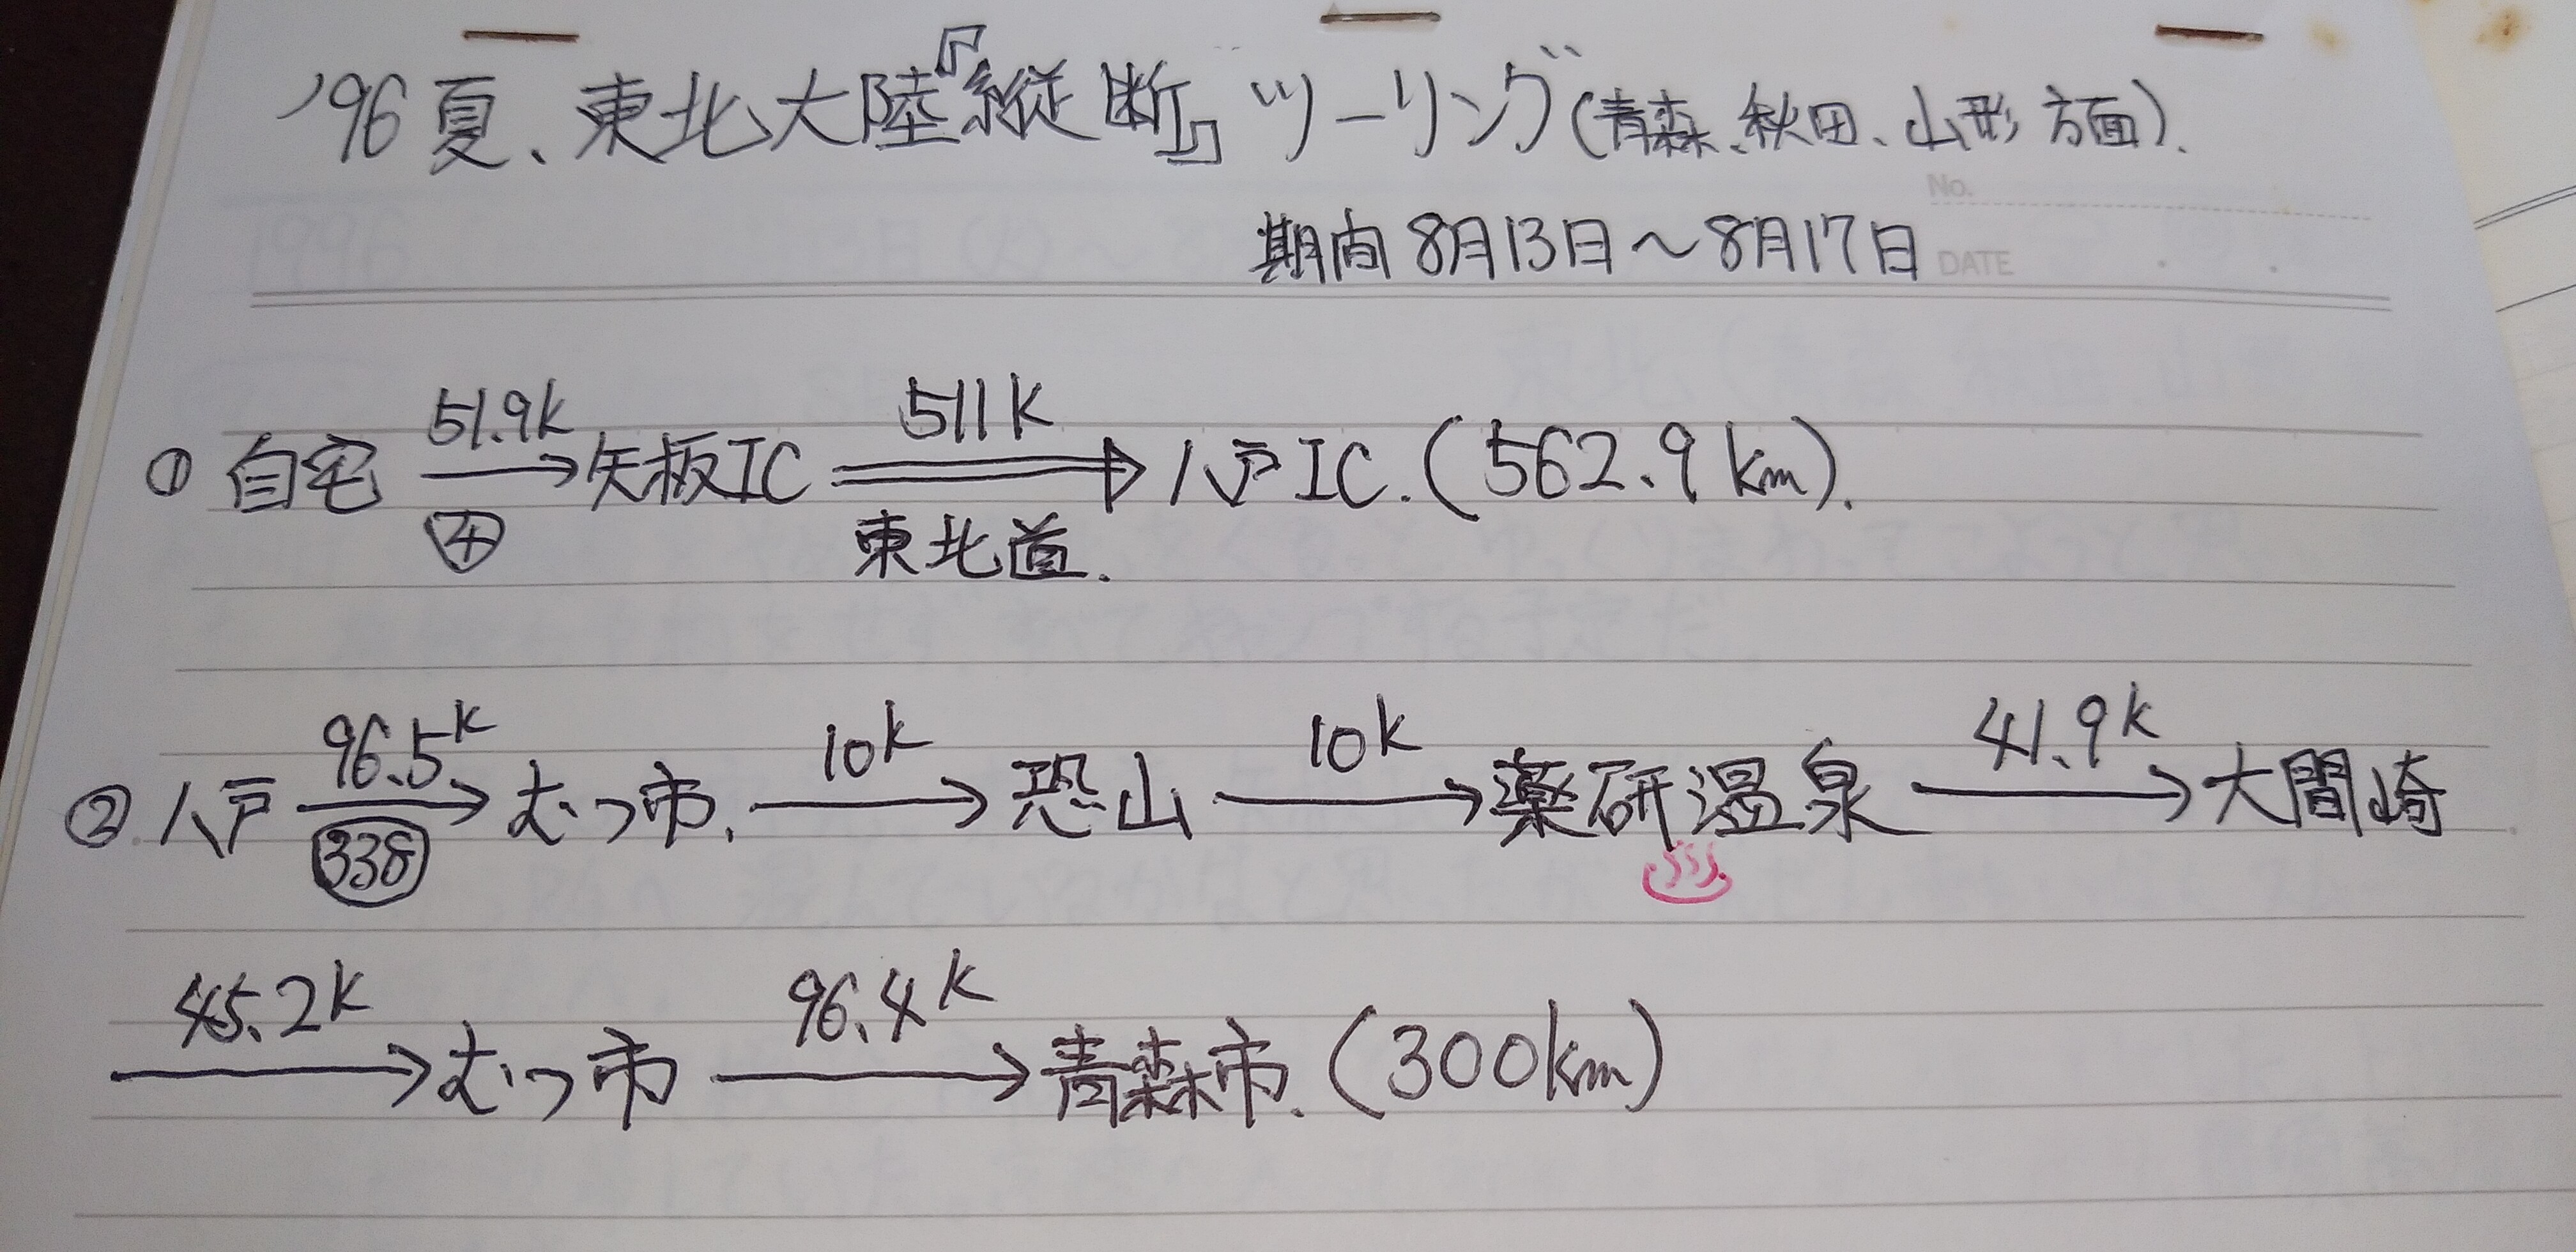 '96 夏、東北大陸『縦断』ツーリング(青森、秋田、山形方面).
No.
期間 8月13日〜8月17日 DATE
51.9k 511k
① 自宅 → 矢板IC ⇒ 八戸IC.(562.9km).
④ 東北道.
96.5k 10k 10k 41.9k
② 八戸 → むつ市. → 恐山 → 薬研温泉 → 大間崎
338 ♨
45.2k 96.4k
→ むつ市 → 青森市.(300km)